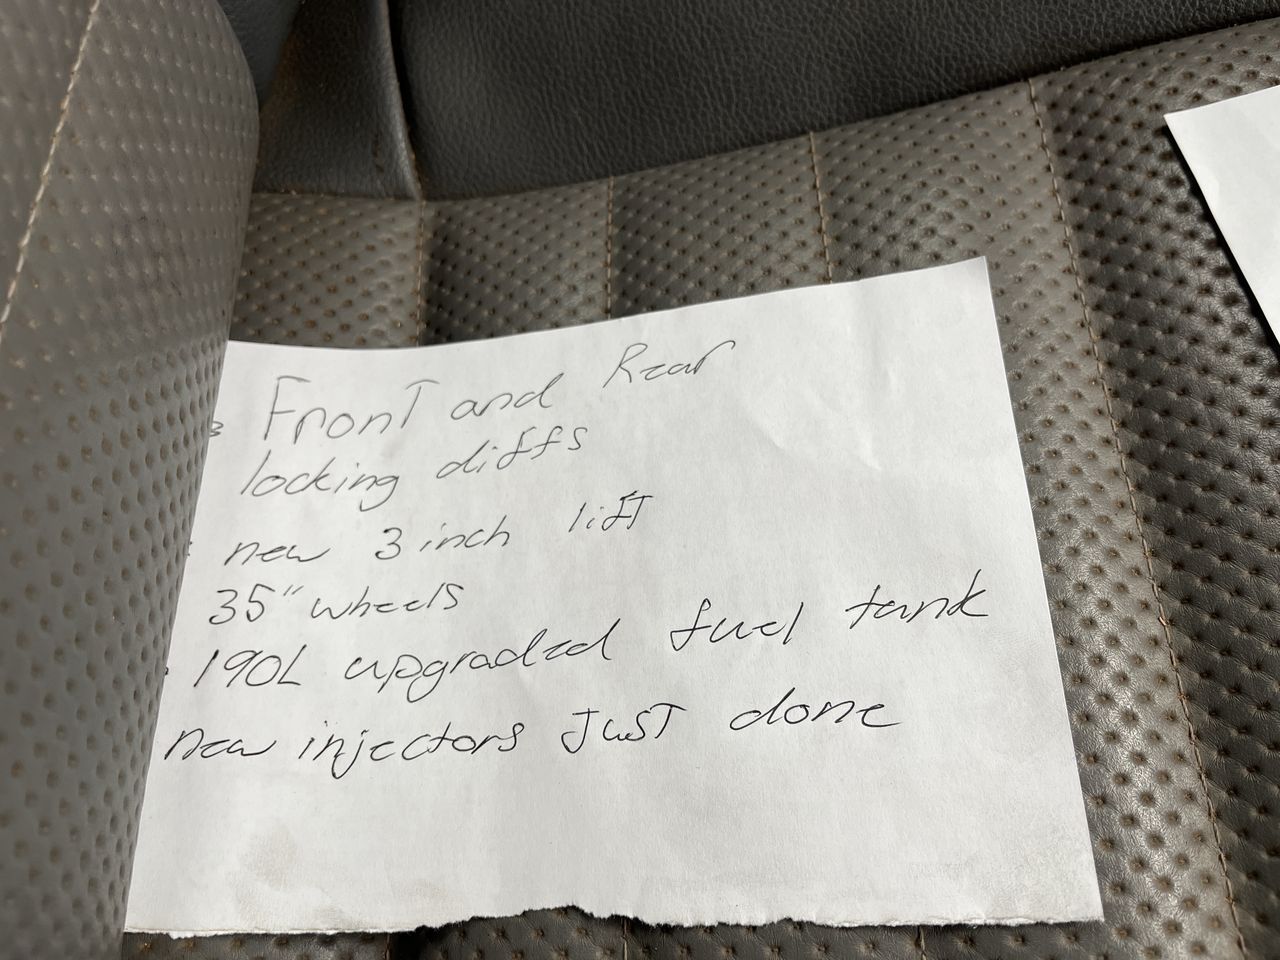 Front and Rear
locking diffs
new 3 inch lift
35" wheels
190L upgraded fuel tank
new injectors Just done